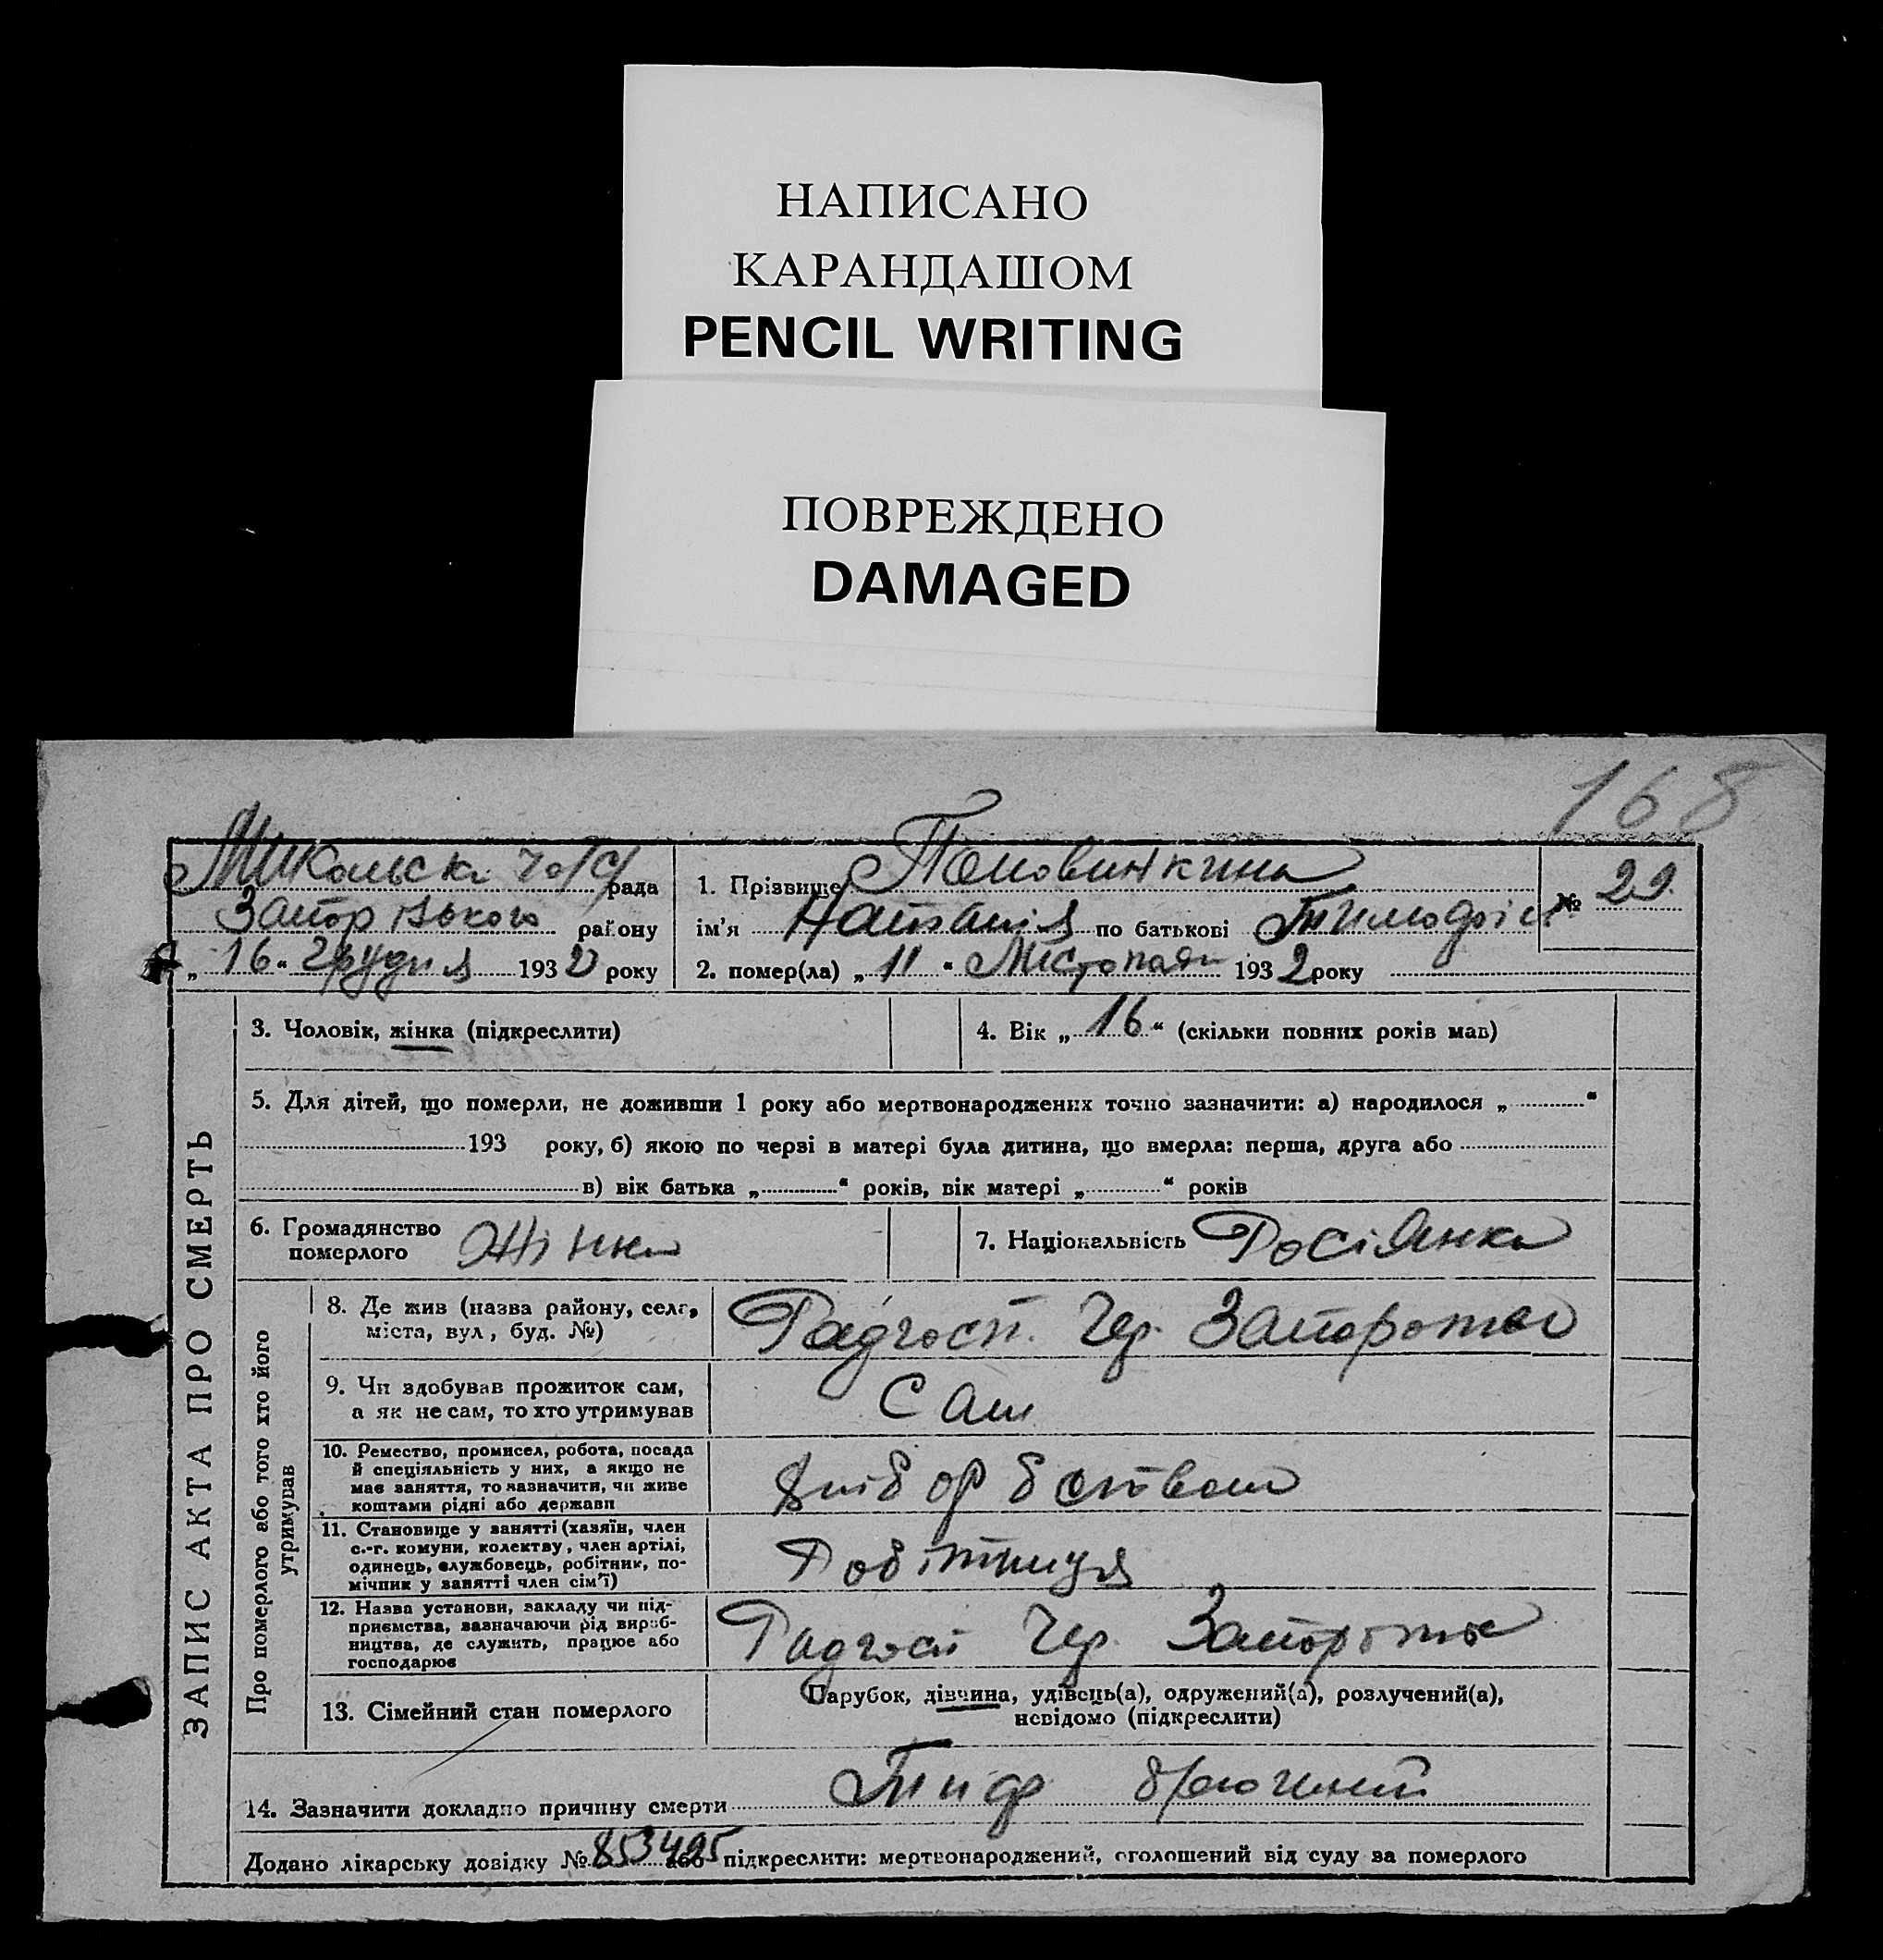 НАПИСАНО
КАРАНДАШОМ
PENCIL WRITING
ПОВРЕЖДЕНО
DAMAGED
168
рада
району
„ 16 “ Грудня 1932 року
1. Прізвище Половинкина
ім'я Наталія по батькові
2. помер(ла) „ 11 “ Листопада 1932 року
№ 29
ЗАПИС АКТА ПРО СМЕРТЬ
3. Чоловік, жінка (підкреслити)
4. Вік „ 16 “ (скільки повних років мав)
5. Для дітей, що померли, не доживши 1 року або мертвонароджених точно зазначити: а) народилося „ “
193 року, б) якою по черзі в матері була дитина, що вмерла: перша, друга або
в) вік батька „ “ років, вік матері „ “ років
6. Громадянство
померлого Жінка
7. Національність Росіянка
Про померлого або того хто його
утримував
8. Де жив (назва району, села,
міста, вул, буд. №)
Радгосп. Чер. Запорожець
9. Чи здобував прожиток сам,
а як не сам, то хто утримував
Сам
10. Ремество, промисел, робота, посада
й спеціяльність у них, а якщо не
має заняття, то зазначити, чи живе
коштами рідні або держави
11. Становище у занятті (хазяїн, член
с.-г. комуни, колективу, член артілі,
одинець, службовець, робітник, по-
мічник у занятті член сім'ї)
Робітниця
12. Назва установи, закладу чи під-
приємства, зазначаючи рід вироб-
ництва, де служить, працює або
господарює
Радгосп Чер. Запорожец
13. Сімейний стан померлого
Парубок, дівчина, удівець(а), одружений(а), розлучений(а),
невідомо (підкреслити)
14. Зазначити докладно причину смерти Тиф брюшний
Додано лікарську довідку № 853495 або підкреслити: мертвонароджений, оголошений від суду за померлого